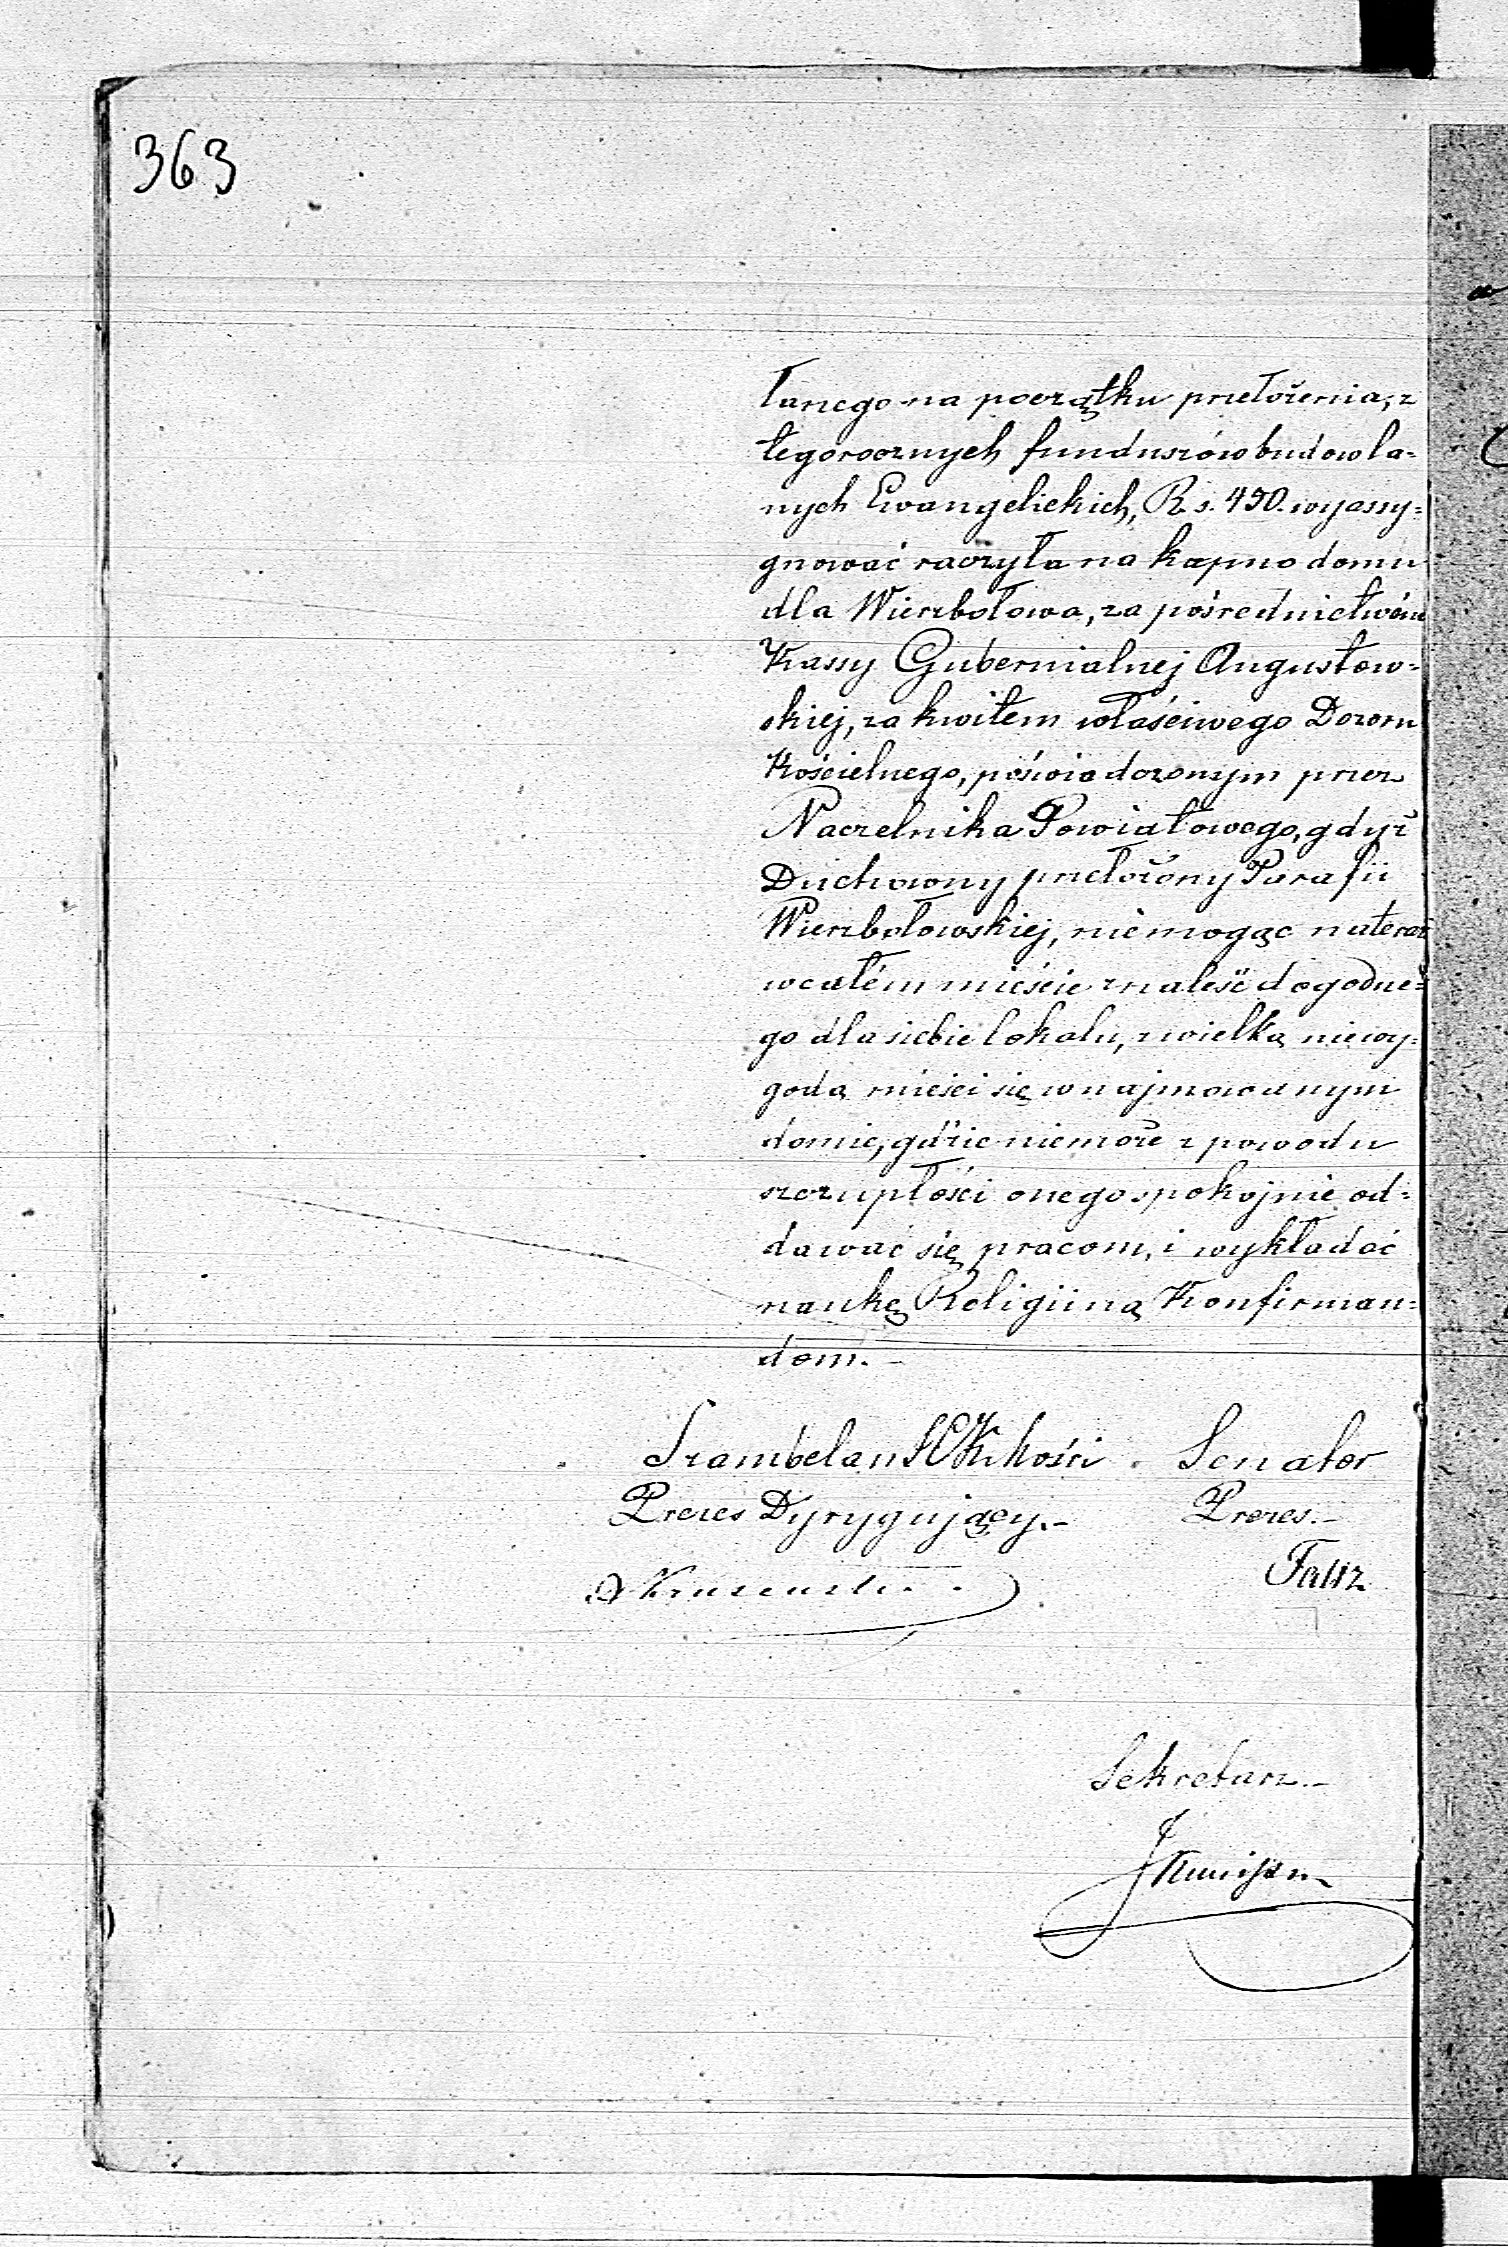 363
łanego na początku przełożenia, z
tegorocznych funduszów budowla-
nych Ewangelickich, Rs. 450. wyassy=
gnować raczyła na kupno domu
dla Wierzbołowa, za pośrednictwem
Kassy Gubernialnej Augustow-
skiej, za kwitem właściwego Dozoru
Kościelnego, poświadczonym przez
Naczelnika Powiatowego, gdyż
Duchowny przełożony Parafii
Wierzbołowskiej, niemogąc nateraz
wcałém mieście znaleść dogodne=
go dla siebie lokalu, z wielką niewy=
godą mieści się w najmowanym
domie, gdzie niemoże z powodu
szczupłości onego spokojnie od=
dawać się pracom, i wykładać
naukę Religiiną Konfirman=
dom.-
Szambelan Senator
Prezes Dyrygujący.- Prezes.-
Faltz
Sekretarz.-